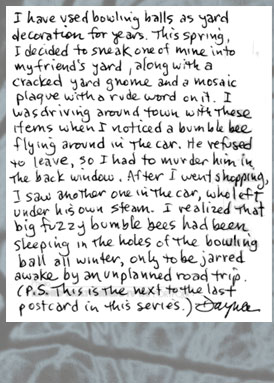 I have used bowling balls as yard
decoration for years. This spring,
I decided to sneak one of mine into
my friend's yard, along with a
cracked yard gnome and a mosaic
plaque with a rude word on it. I
was driving around town with these
items when I noticed a bumble bee
flying around in the car. He refused
to leave, so I had to murder him in
the back window. After I went shopping,
I saw another one in the car, who left
under his own steam. I realized that
big fuzzy bumble bees had been
sleeping in the holes of the bowling
ball all winter, only to be jarred
awake by an unplanned road trip.
(P.S. This is the next to the last
postcard in this series.) Dayna